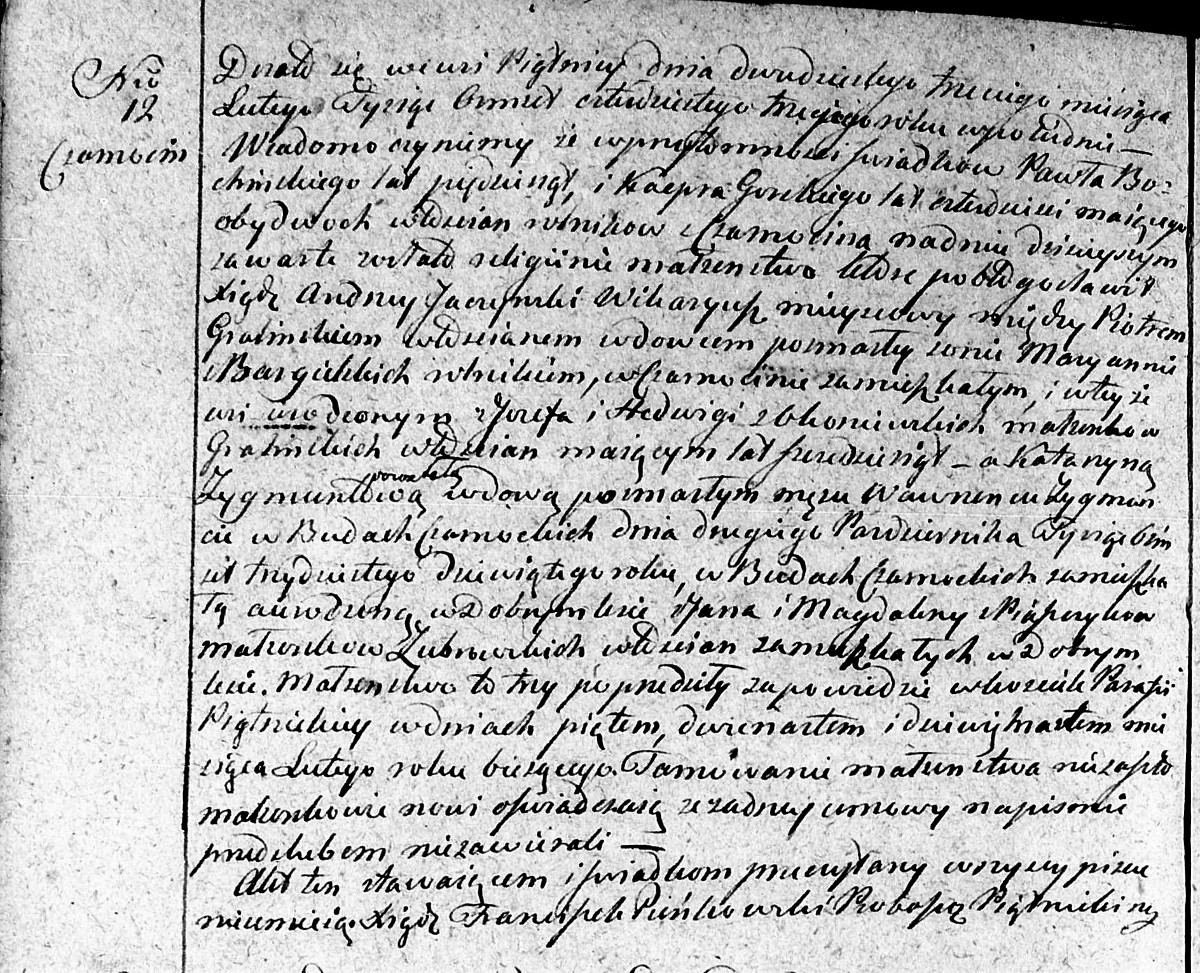 Nro
12
Czarnocin
Działo się we wsi Piątnicy dnia dwudziestego trzeciego miesiąca
Lutego Tysiąc ośmset czterdziestego trzeciego roku w południe —
Wiadomo czyniemy że w przytomności świadków Pawła Bo-
chińskiego lat pięćdziesiąt, i Kacpra Gorskiego lat czterdzieści mających
obydwoch włościan rolnikow z Czarnocina na dniu dzisiejszym
zawarte zostało religijnie małżeństwo które pobłogosławił
Xiądz Andrzey Jaczyński Wikaryusz mieyscowy między Piotrem
Gralińskiem włościanem wdowcem po zmarły zonie Maryannie
z Bargielskich rolnikiem, w Czarnocinie zamieszkałym, i w tey że
wsi urodzonym z Jozefa i Hedwigi z Choniewskich małżonkow
Gralińskich włościan maiącym lat sześćdziesiąt — a Katarzyną
Zygmuntową pozostałą wdową po zmarłym mężu Wawrzeńcu Zygmun-
cie w Budach Czarnockich dnia drugiego Pazdziernika Tysiąc ośm
set trzydziestego dziewiątego roku, w Budach Czarnockich zamieszka
łą a urodzoną w Dobrymlesie z Jana i Magdaleny z
małżonkow Zubrowskich włościan zamieszkałych w Dobrym
lesie. Małżeństwo to trzy poprzedziły zapowiedzie w kosciele Parafii
Piątnickiey w dniach piątem, dwunastem i dziewiętnastem mie
siąca Lutego roku bieżącego. Tamowanie małżenstwa nie zaszło
małżonkowie nowi oświadczaią ze zadney umowy na pismie
przed slubem niezawierali —
Akt ten stawaiącem i świadkom przeczytany wszyscy pisać
nieumieią. Xiądz Franciszek Pieńkowski Proboszcz Piątnickiey